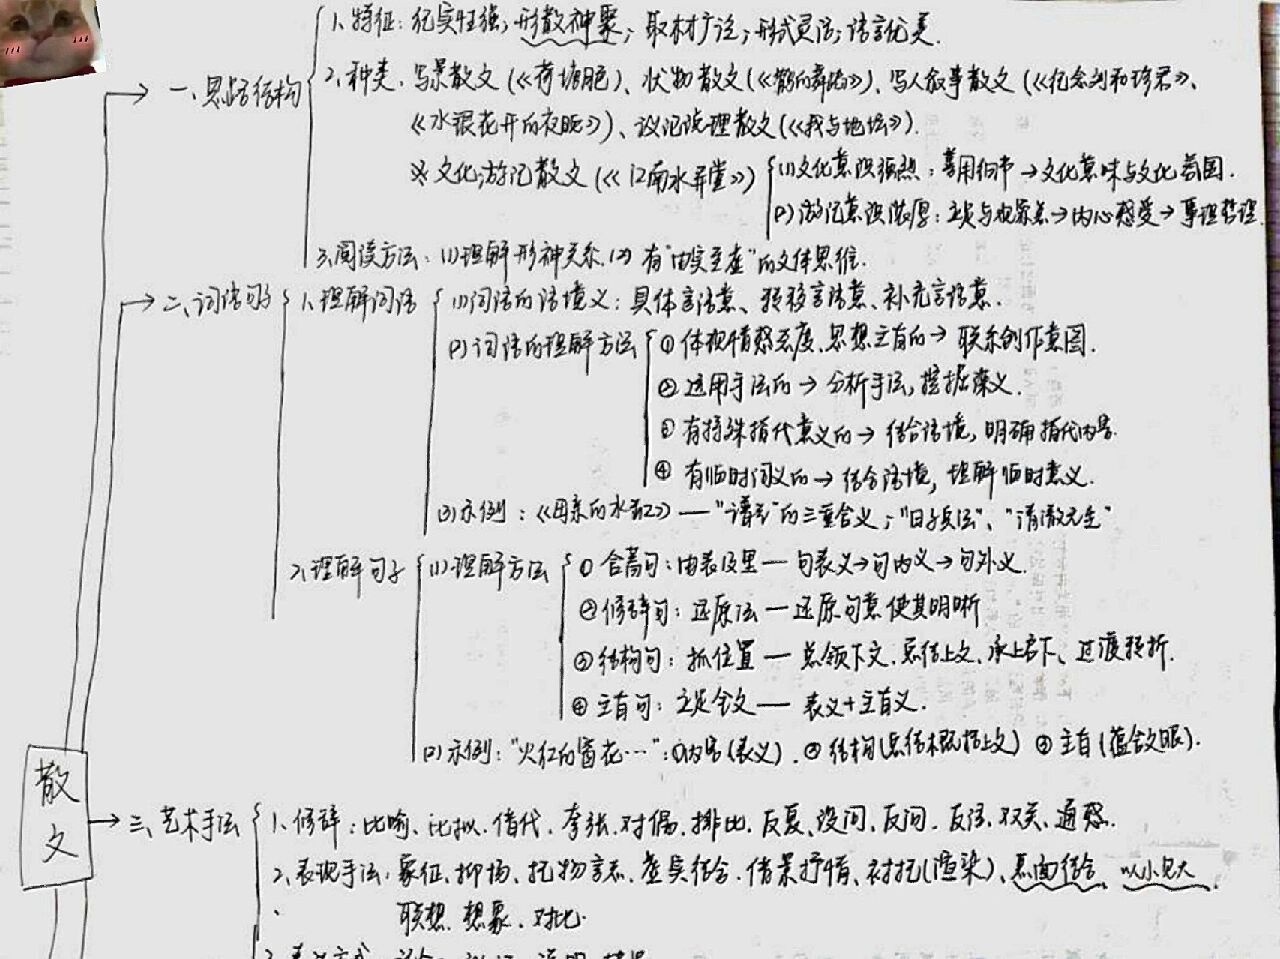 一、思路结构
1、特征：纪实性强，形散神聚，取材广泛，形式灵活，语言优美.
2、种类、写景散文(《荷塘月色》、状物散文(《鹤的舞蹈》)、写人叙事散文(《纪念刘和珍君》、
《水银花开的夜晚》)、议论说理散文(《我与地坛》).
※文化游记散文(《江南水弄堂》)
(1)文化意识强烈：善用细节→文化意味与文化氛围.
(2)游记意识浓厚：立足与观景点→内心感受→事理哲理
3、阅读方法：(1)理解形神关系.(2)有“由实至虚”的文体思维.
二、词语句子
1、理解词语
(1)词语的语境义：具体言语意、转移言语意、补充言语意.
(2)词语的理解方法
①体现情感态度、思想主旨的→联系创作意图.
②运用手法的→分析手法，挖掘深义.
③有特殊指代意义的→结合语境，明确指代内容.
④有临时词义的→结合语境，理解临时意义.
(3)示例：《母亲的水缸》—“谱”的三重含义；“日子兵法”、“清澈元年”
2、理解句子
(1)理解方法
①含蓄句：由表及里—句表义→句内义→句外义.
②修辞句：还原法—还原句意使其明晰
③结构句：抓位置—总领下文、总结上文、承上启下、过渡转折.
④主旨句：立足全文—表义+主旨义.
(2)示例：“火红的窗花…”：①内容(表义).②结构(总结概括上文)③主旨(蕴含文眼).
散文
三、艺术手法
1、修辞：比喻、比拟、借代、夸张、对偶、排比、反复、设问、反问、反语、双关、通感.
2、表现手法：象征、抑扬、托物言志、虚实结合、借景抒情、衬托(渲染)、点面结合、以小见大
联想、想象、对比.